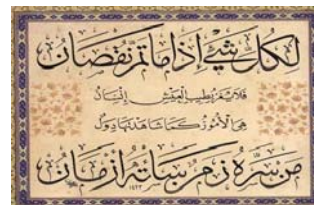 لِكُلِّ شَيْءٍ إِذَا مَا تَمَّ نُقْصَانُ
فَلَا يُغَرَّ بِطِيبِ الْعَيْشِ إِنْسَانُ
هِيَ الْأُمُورُ كَمَا شَاهَدْتَهَا دُوَلٌ
مَنْ سَرَّهُ زَمَنٌ سَاءَتْهُ أَزْمَانُ